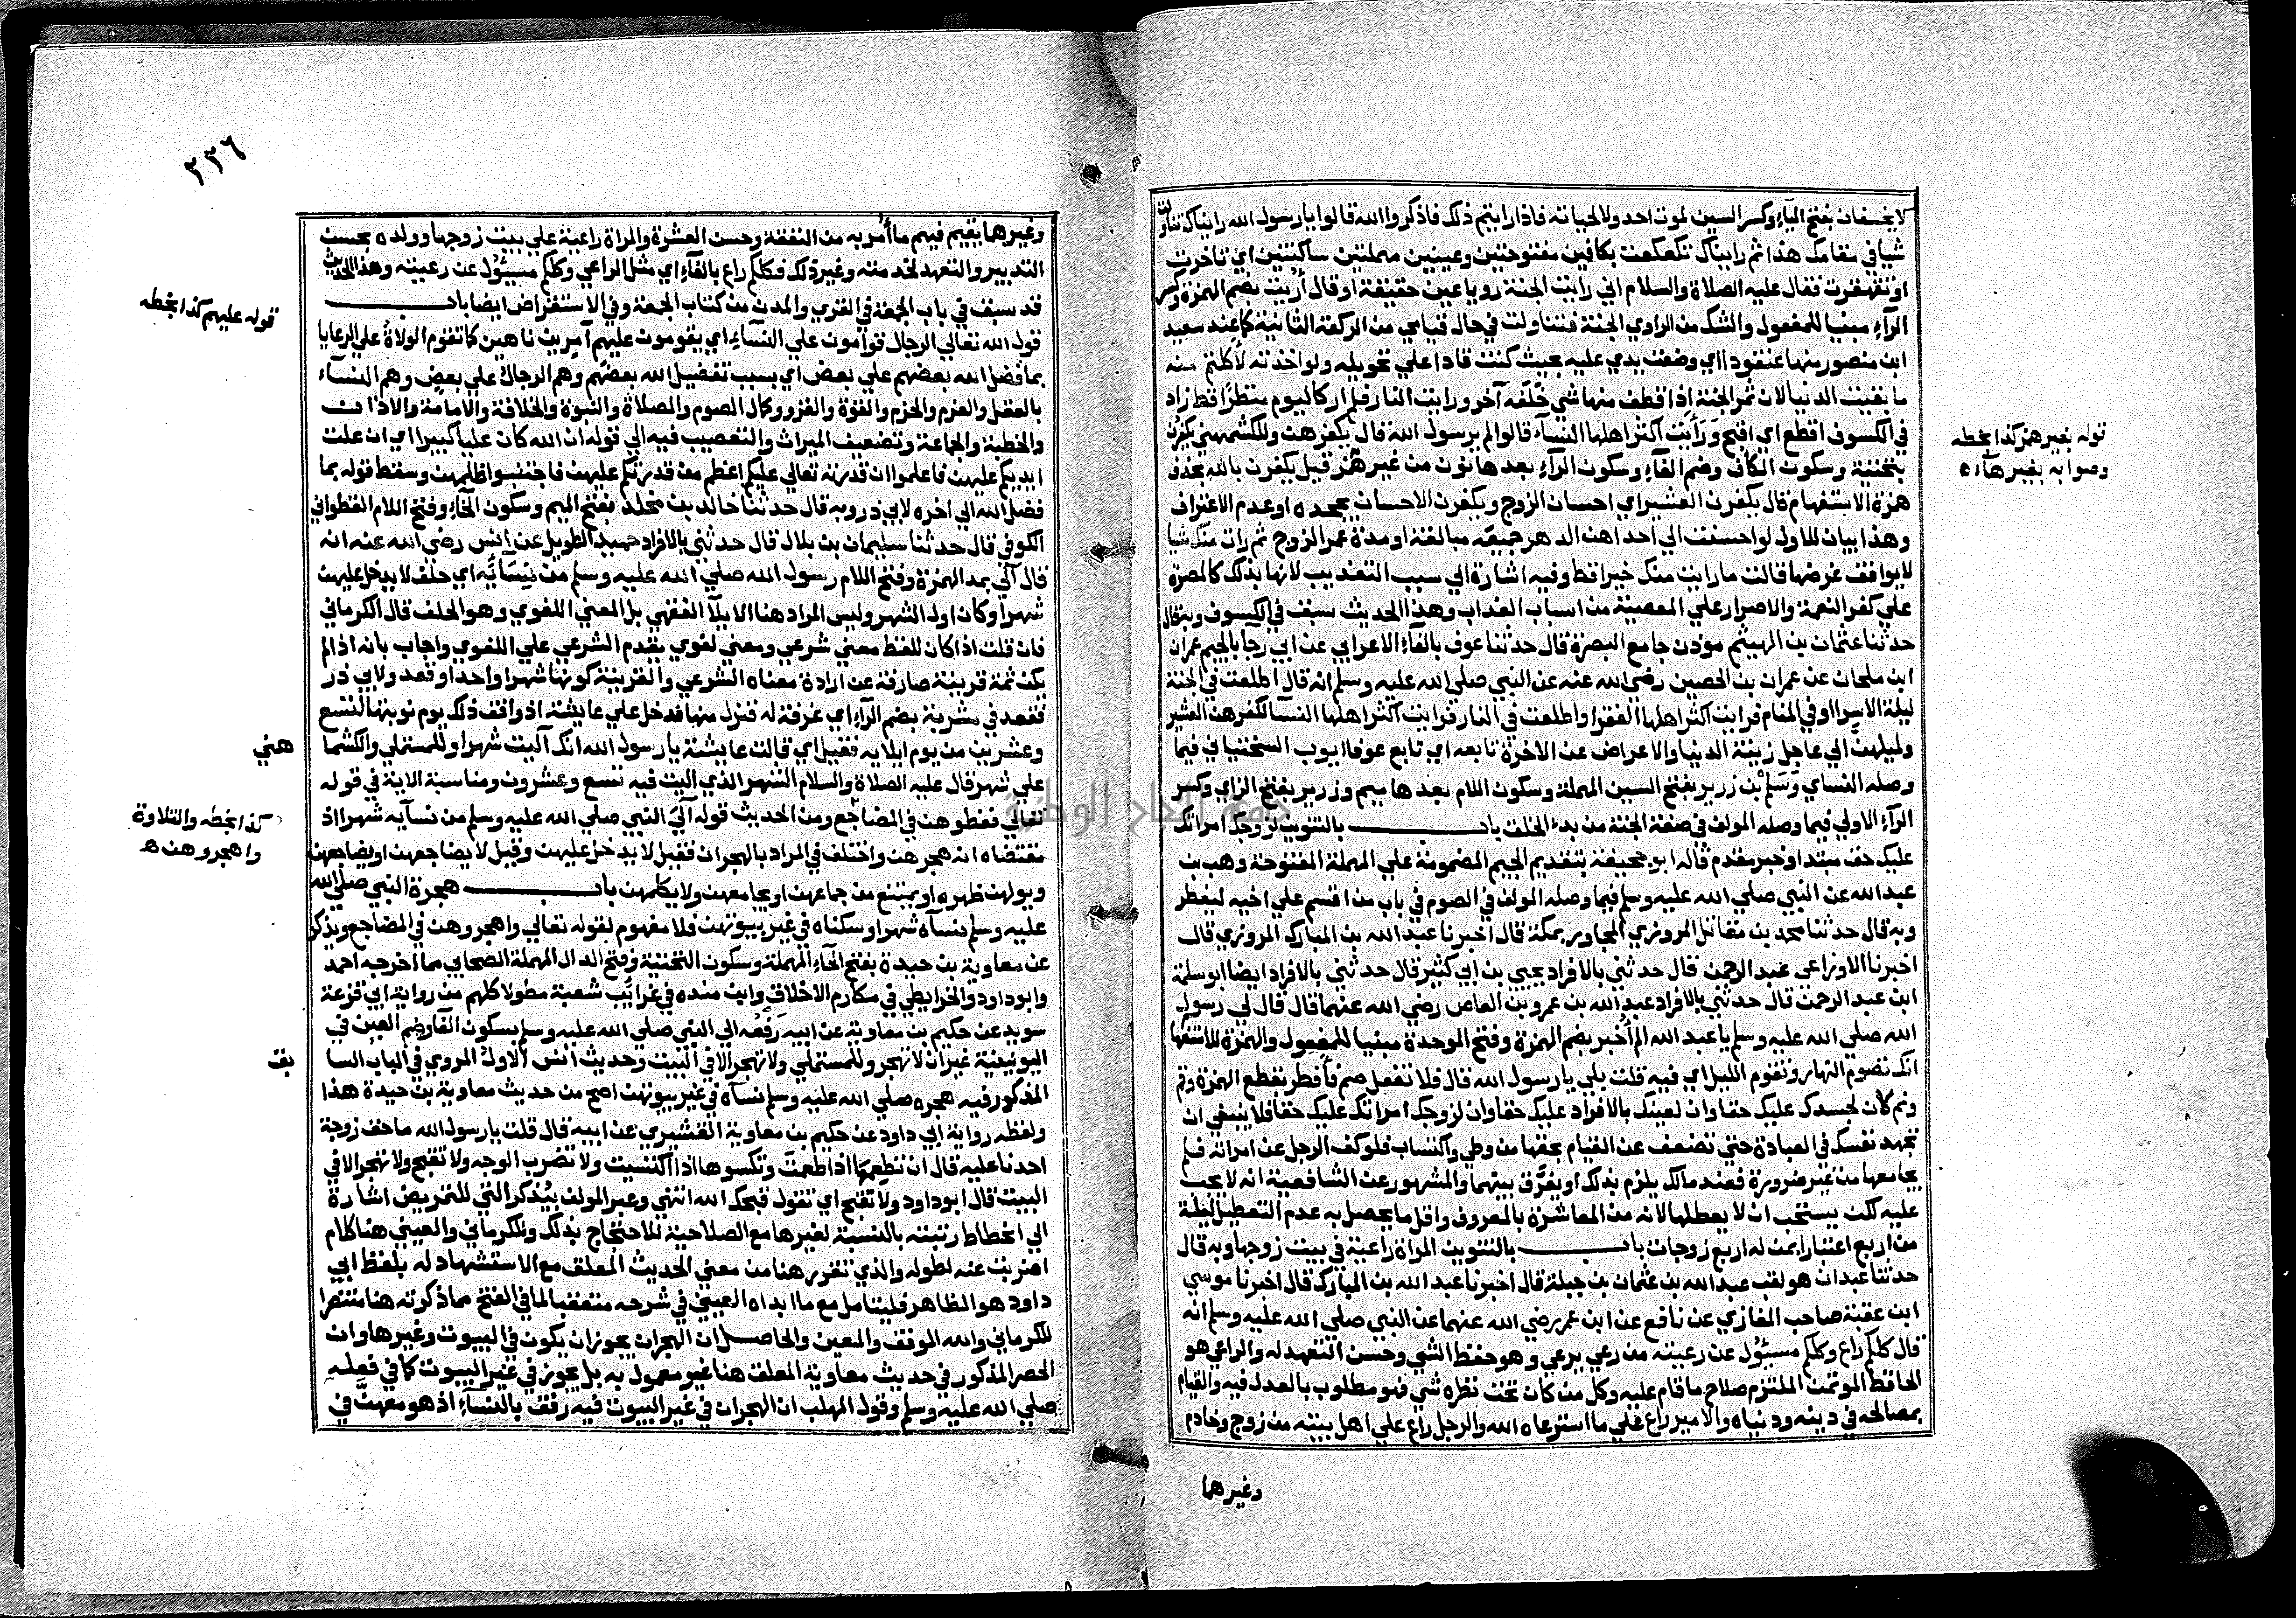 لا يخسفان بفتح الياء وكسر السين لموت احد ولا لحياته فاذا رايتم ذلك فاذكروا الله قالوا يا رسول الله رايناك تناولت
شيا في مقامك هذا ثم رايناك تكعكعت بكافين مفتوحتين وعينين مهملتين ساكنتين اي تاخرت
او تقهقرت فقال عليه الصلاة والسلام اني رايت الجنة رويا عين حقيقة او قال أريت بضم الهمزة وكسر
الرآء مبنيا للمفعول والشك من الراوي الجنة فتناولت في حال قيامي من الركعة الثانية كما عند سعيد
ابن منصور منها عنقودا اي وضعت يدي عليه بحيث كنت قادرا علي تحويله ولو اخذته لأكلتم منه
ما بقيت الدنيا لان ثمر الجنة اذا قطف منها شي خلفه آخر ورايت النار فلم ار كاليوم منظرا قط زاد
في الكسوف افظع اي اقبح وَرَأَيت اكثر اهلها النسآء قالوا لم يرسول الله قال بكفرهن وللكشميهني يكفرن
بتحتية وسكون الكاف وضم الفآء وسكون الرآء بعدها نون من غير هز قيل يكفرن بالله بحذف
همزة الاستفهام قال يكفرن العشير اي احسان الزوج ويكفرن الاحسان بجحده او عدم الاعتراف
وهذا بيان للاول لو احسنت الي احداهن الدهر جميعه مبالغة او مدة عمر الزوج ثم رات منك شيا
لا يوافق غرضها قالت ما رايت منك خيرا قط وفيه اشارة الي سبب التعذيب لانها بذلك كالمصرة
علي كفر النعمة والاصرار علي المعصية من اسباب العذاب وهذا الحديث سبق في الكسوف وبه قال
حدثنا عثمان بن الهيثم موذن جامع البصرة قال حدثنا عوف بالفآء الاعرابي عن ابي رجا بالجيم عمران
ابن ملحان عن عمران بن الحصين رضي الله عنه عن النبي صلي الله عليه وسلم انه قال اطلعت في الجنة
ليلة الاسرا او في المنام فرايت اكثر اهلها الفقرا واطلعت في النار فرايت اكثر اهلها النسآ لكفرهن العشير
ولميلهن الي عاجل زينة الدنيا والاعراض عن الاخرة تابعه اي تابع عوفا ايوب السختياني فيما
وصله النساي وَسَلْم بن زرير بفتح السين المهملة وسكون اللام بعدها ميم وزرير بفتح الزاي وكسر
الرآء الاولي فيما وصله المولف في صفة الجنة من بدء الخلق باب بالتنوين لزوجك امراتك
عليك حق مبتدا وخبر مقدم قاله ابو جحيفة بتقديم الجيم المضمومة علي المهملة المفتوحة وهب بن
عبد الله عن النبي صلي الله عليه وسلم فيما وصله المولف في الصوم في باب من اقسم علي اخيه ليفطر
وبه قال حدثنا محمد بن مقاتل المروزي المجاور بمكة قال اخبرنا عبد الله بن المبارك المروزي قال
اخبرنا الاوزاعي عبد الرحمن قال حدثني بالافراد يحيي بن ابي كثير قال حدثني بالافراد ايضا ابو سلمة
ابن عبد الرحمن قال حدثني بالافراد عبد الله بن عمرو بن العاص رضي الله عنهما قال قال لي رسول
الله صلي الله عليه وسلم يا عبد الله الم أخبر بضم الهمزة وفتح الموحدة مبنيا للمفعول والهمزة للاستفهام
انك تصوم النهار وتقوم الليل اي فيه قلت بلي يا رسول الله قال فلا تفعل صم وأفطر بقطع الهمزة وقم
ونم فان لجسدك عليك حقا وان لعينك بالافراد عليك حقا وان لزوجك امراتك عليك حقا فلا ينبغي ان
تجهد نفسك في العبادة حتي تضعف عن القيام بحقها من وطي واكتساب فلو كف الرجل عن امراته فلم
يجامعها من غير ضرورة فعند مالك يلزم بذلك او يفرَّق بينهما والمشهور عن الشافعية انه لا يجب
عليه لكن يستحب ان لا يعطلها لانه من المعاشرة بالمعروف واقل ما يحصل به عدم التعطيل ليلة
من اربع اعتبارا بمن له اربع زوجات باب بالتنوين المراة راعية في بيت زوجها وبه قال
حدثنا عبدان هو لقب عبد الله بن عثمان بن جبلة قال اخبرنا عبد الله بن المبارك قال اخبرنا موسي
ابن عقبة صاحب المغازي عن نافع عن ابن عمر رضي الله عنهما عن النبي صلي الله عليه وسلم انه
قال كلكم راع وكلكم مسئول عن رعيته من رعي يرعي وهو حفظ الشي وحسن التعهد له والراعي هو
الحافظ الموتمن الملتزم صلاح ما قام عليه وكل من كان تحت نظره شي فهو مطلوب بالعدل فيه والقيام
بمصالحه في دينه ودنياه والامير راع علي ما استرعاه الله والرجل راع علي اهل بيته من زوج وخادم
وغيرهما
قوله بغير همز كذا بخطه
وصوابه بغير هآء ه
٢٢٦
وغيرهما يقيم فيهم ما أمر به من النفقة وحسن العشرة والمراة راعية علي بيت زوجها وولده بحسن
التدبير والتعهد لخدمته وغير ذلك فكلكم راع بالفآء اي مثل الراعي وكلكم مسئول عن رعيته وهذا الحديث
قد سبق في باب الجمعة في القري والمدن من كتاب الجمعة وفي الاستقراض ايضا باب
قول الله تعالي الرجال قوامون علي النسآء اي يقومون عليهم آمرين ناهين كما تقوم الولاة علي الرعايا
بما فضل الله بعضهم علي بعض اي بسبب تفضيل الله بعضهم وهم الرجال علي بعض وهم النسآء
بالعقل والعزم والحزم والقوة والغزو وكمال الصوم والصلاة والنبوة والخلافة والامامة والاذان
والخطبة والجماعة وتضعيف الميراث والتعصيب فيه الي قوله ان الله كان عليا كبيرا اي ان علت
ايديكم عليهن فاعلموا ان قدرته تعالي عليكم اعظم من قدرتكم عليهن فاجتنبوا ظلمهن وسقط قوله بما
فضل الله الي اخره لابي ذر وبه قال حدثنا خالد بن مخلد بفتح الميم وسكون الخآء وفتح اللام القطواني
الكوفي قال حدثنا سليمان بن بلال قال حدثني بالافراد حميد الطويل عن انس رضي الله عنه انه
قال آلي بمد الهمزة وفتح اللام رسول الله صلي الله عليه وسلم من نِسَآئِه اي حلف لا يدخل عليهن
شهرا وكان اول الشهر وليس المراد هنا الايلآ الفقهي بل المعني اللغوي وهو الحلف قال الكرماني
فان قلت اذا كان للفظ معني شرعي ومعني لغوي يقدم الشرعي علي اللغوي واجاب بانه اذا لم
يكن ثمة قرينة صارفة عن ارادة معناه الشرعي والقرينة كونها شهرا واحدا وقعد ولابي ذر
فقعد في مشربة بضم الرآء اي غرفة له فنزل منها فدخل علي عايشة اذ وافق ذلك يوم نوبتها لتسع
وعشرين من يوم ايلايه فقيل اي قالت عايشة يا رسول الله انك آليت شهرا وللمستملي والكشما
هني
علي شهر قال عليه الصلاة والسلام الشهر الذي اليت فيه تسع وعشرون ومناسبة الاية في قوله
تعالي فعظوهن في المضاجع ومن الحديث قوله آلي النبي صلي الله عليه وسلم من نسآيه شهرا اذ
مقتضاه انه هجرهن واختلف في المراد بالهجران فقيل لا يدخل عليهن وقيل لا يضاجعهن او يضاجعهن
ويولهن ظهره او يمتنع من جماعهن او يجامعهن ولا يكلمهن باب هجرة النبي صلي الله
عليه وسلم نسآه شهرا وسكناه في غير بيوتهن فلا مفهوم لقوله تعالي واهجروهن في المضاجع ويذكر
عن معاوية بن حيدة بفتح الحآء المهملة وسكون التحتية وفتح الدال المهملة الصحابي مما اخرجه احمد
وابو داود والخرايطي في مكارم الاخلاق وابن منده في غرايب شعبة مطولا كلهم من رواية ابي قزعة
سويد عن حكيم بن معاوية عن ابيه رَفْعُه الي النبي صلي الله عليه وسلم بسكون الفآء وضم العين في
اليونينية غير ان لا تهجر وللمستملي ولا تهجر الا في البيت وحديث انس الاول المروي في الباب السا
بق
المذكور فيه هجره صلي الله عليه وسلم نسآه في غير بيوتهن اصح من حديث معاوية بن حيدة هذا
ولفظ رواية ابي داود عن حكيم بن معاوية القشيري عن ابيه قال قلت يا رسول الله ما حق زوجة
احدنا عليه قال ان تطعِمها اذا طعمتَ وتكسوها اذا اكتسيت ولا تضرب الوجه ولا تقبح ولا تهجر الا في
البيت قال ابو داود ولا تقبح اي تقول قبحك الله انتهي وعبر المولف بيُذكر التي للتمريض اشارة
الي انحطاط رتبته بالنسبة لغيرها مع الصلاحية للاحتجاج بذلك وللكرماني والعيني هنا كلام
اضربت عنه لطوله والذي تقرر هنا من معني الحديث المعلق مع الاستشهاد له بلفظ ابي
داود هو الظاهر فليتامل مع ما ابداه العيني في شرحه متعقبا لما في الفتح مما ذكرته هنا منتصرا
للكرماني والله الموفق والمعين والحاصل ان الهجران يجوز ان يكون في البيوت وغيرها وان
الحصر المذكور في حديث معاوية المعلق هنا غير معمول به بل يجوز في غير البيوت كما في فعله
صلي الله عليه وسلم وقول المهلب ان الهجران في غير البيوت فيه رفق بالنسآء اذ هو معهن في
قوله عليهم كذا بخطه
كذا بخطه والتلاوة
واهجروهن ه